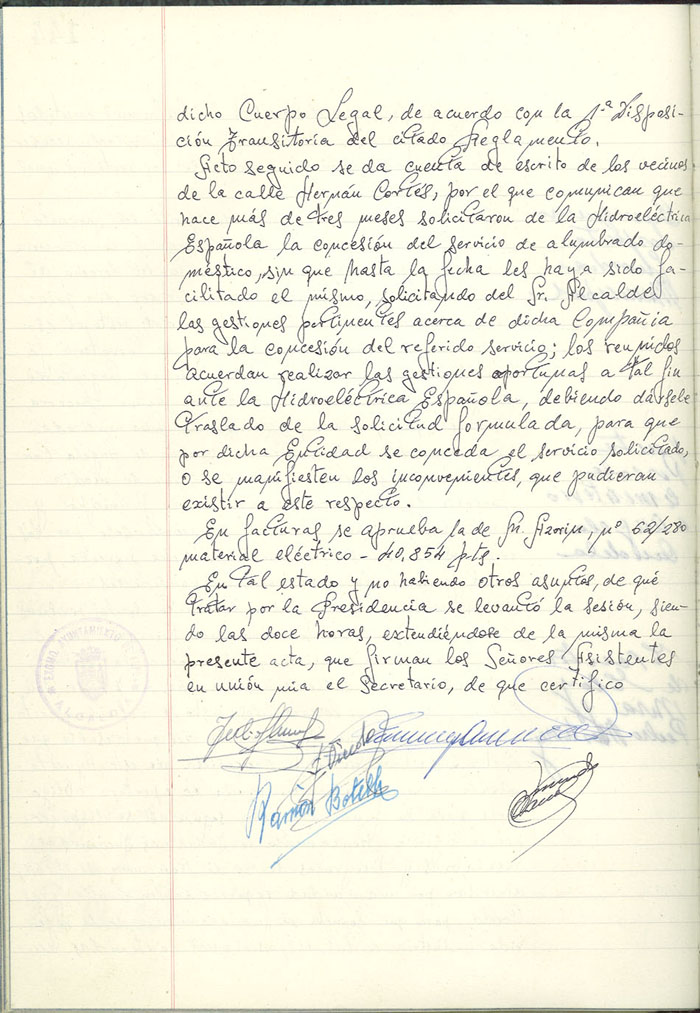 dicho Cuerpo Legal, de acuerdo con la 1ª Disposi-
ción Transitoria del citado Reglamento.
Acto seguido se da cuenta de escrito de los vecinos
de la calle Hernán Cortés, por el que comunican que
hace más de tres meses solicitaron de la Hidroeléctrica
Española la concesión del servicio de alumbrado do-
méstico, sin que hasta la fecha les haya sido fa-
cilitado el mismo, solicitando del Sr. Alcalde
las gestiones pertinentes acerca de dicha Compañia
para la concesión del referido servicio; los reunidos
acuerdan realizar las gestiones oportunas a tal fin
ante la Hidroeléctrica Española, debiendo dársele
traslado de la solicitud formulada, para que
por dicha Entidad se conceda el servicio solicitado,
o se manifiesten los inconvenientes, que pudieran
existir a este respecto.
En facturas se aprueba la de Fn. Azorin, nº 62/280
material eléctrico - 40.854 pts.
En tal estado y no habiendo otros asuntos, de qué
tratar por la Presidencia se levantó la sesión, sien-
do las doce horas, extendiéndose de la misma la
presente acta, que firman los Señores Asistentes
en unión mía el Secretario, de que certifico
Ramón Botella
AYUNTAMIENTO